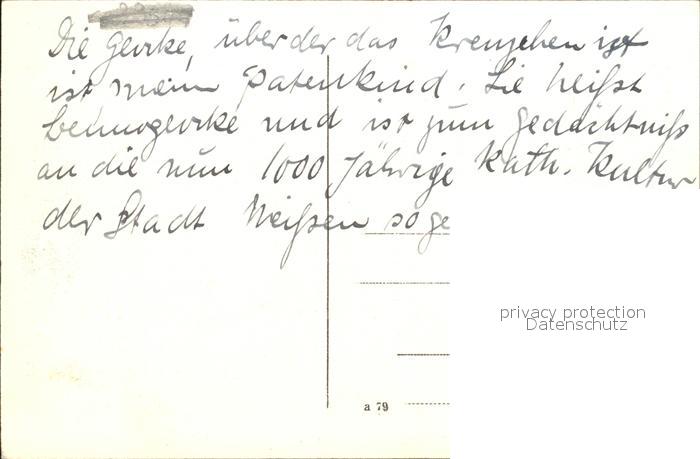 Die Glocke, über der das Kreuzchen ist
ist mein Patenkind. Sie heißt
Bennoglocke und ist zum Gedächtniß
an die nun 1000 Jährige Kath. Kultur
der Stadt Meißen so ge
privacy protection
Datenschutz
a 79